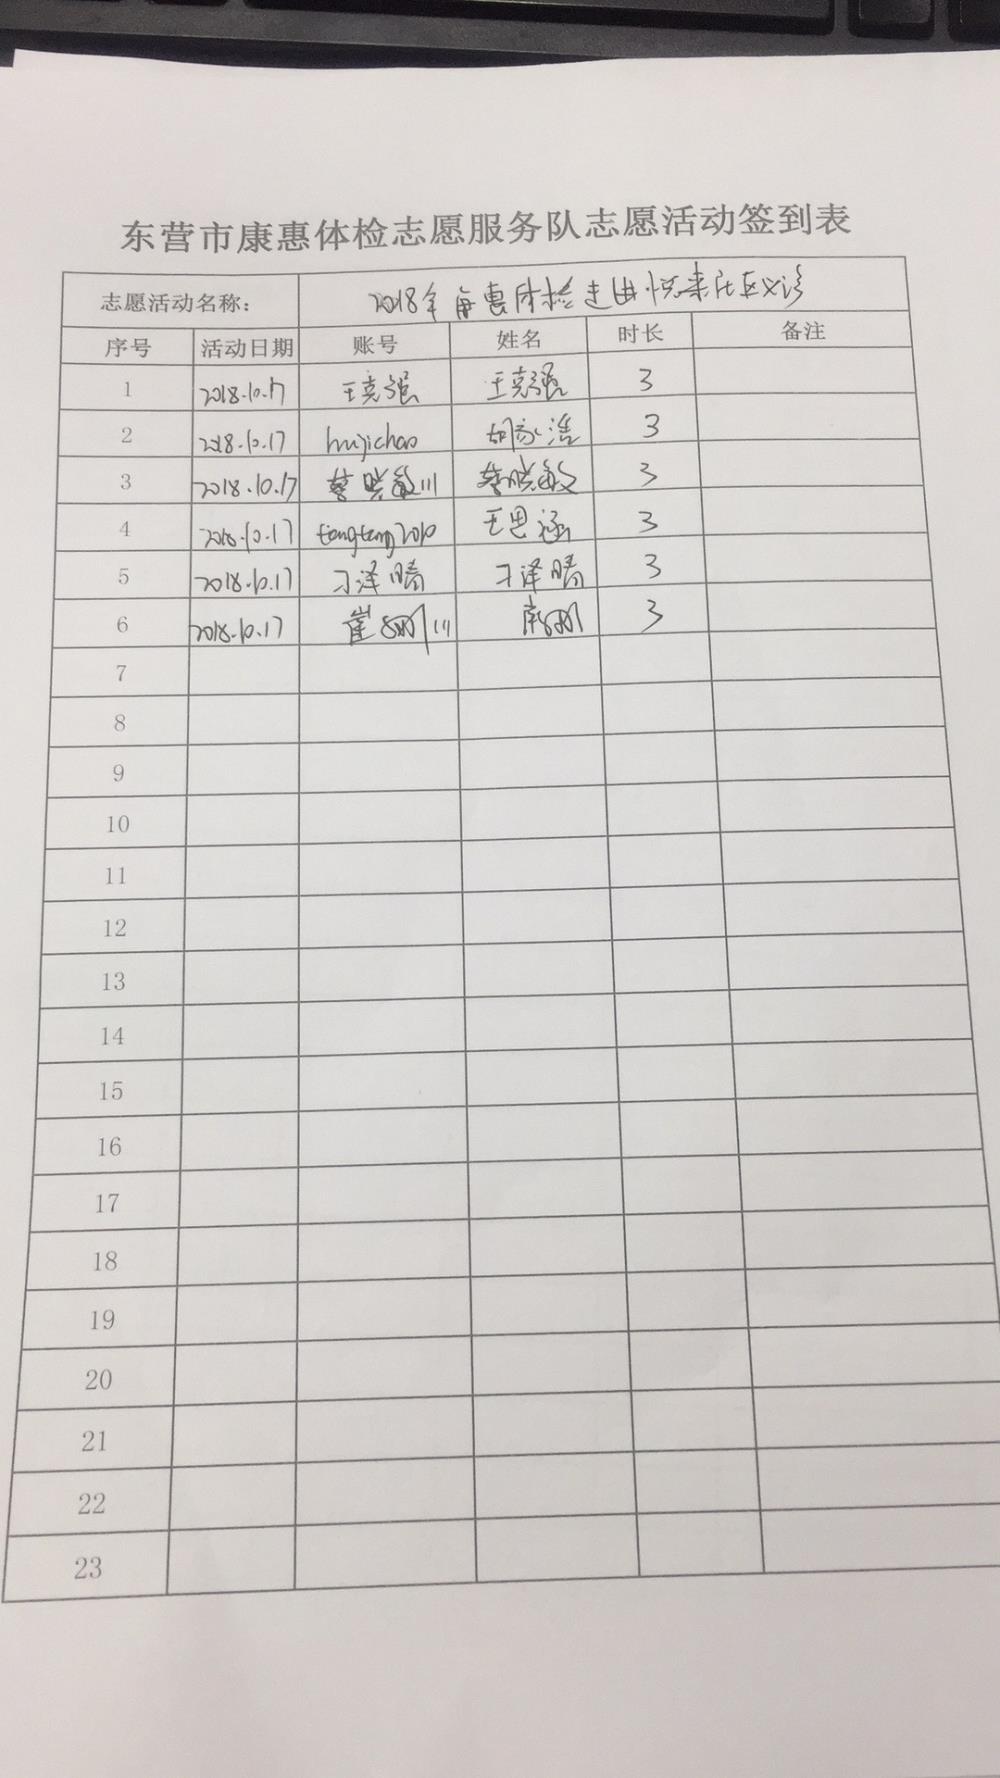 东营市康惠体检志愿服务队志愿活动签到表
志愿活动名称： 2018年康惠体检走进悦来社区义诊
序号 活动日期 账号 姓名 时长 备注
1 2018.10.17 王克强 王克强 3
2 2018.10.17 hujichao 胡 浩 3
3 2018.10.17 蔡晓敏111 蔡晓敏 3
4 2018.10.17 tengteng2010 王思涵 3
5 2018.10.17 刁泽晴 刁泽晴 3
6 2018.10.17 崔 111 3
7
8
9
10
11
12
13
14
15
16
17
18
19
20
21
22
23